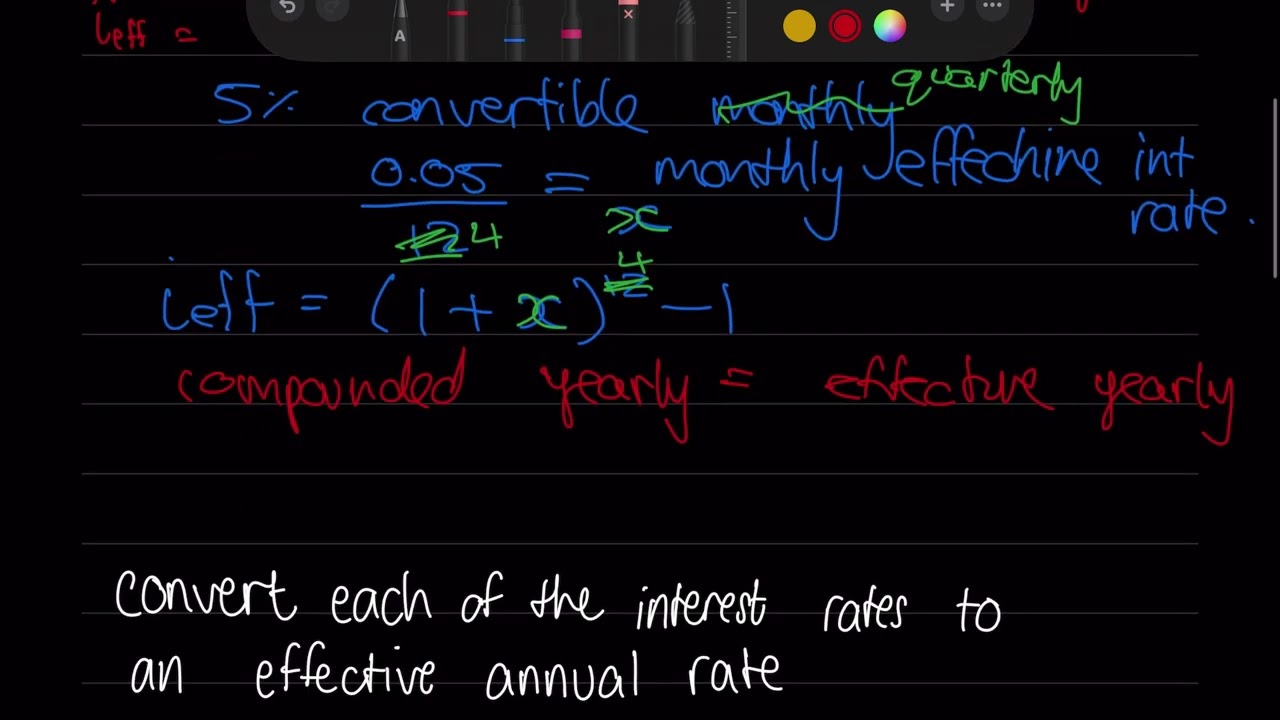 ieff =
5% convertible monthly quarterly
0.05 = monthly effective int
12 4 x rate.
ieff = (1 + x)^12 4 - 1
compounded yearly = effective yearly
convert each of the interest rates to
an effective annual rate
A